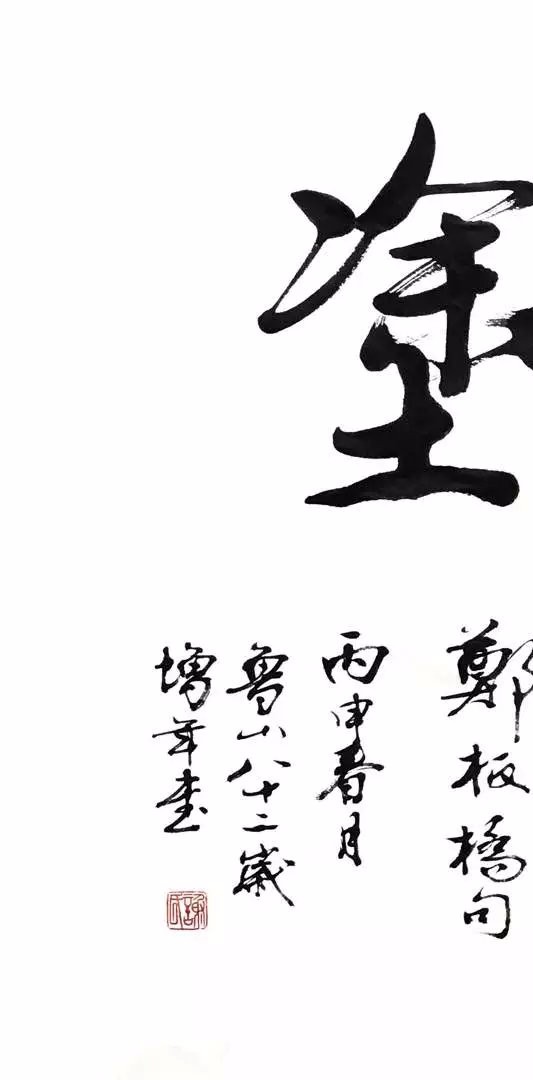 塗
鄭板橋句
丙申春月
魯山八十二歲
增年書